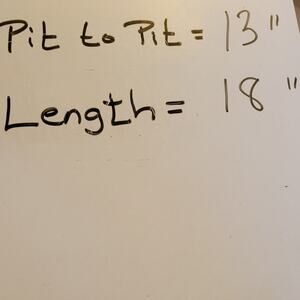 Pit to Pit = 13"
Length = 18"